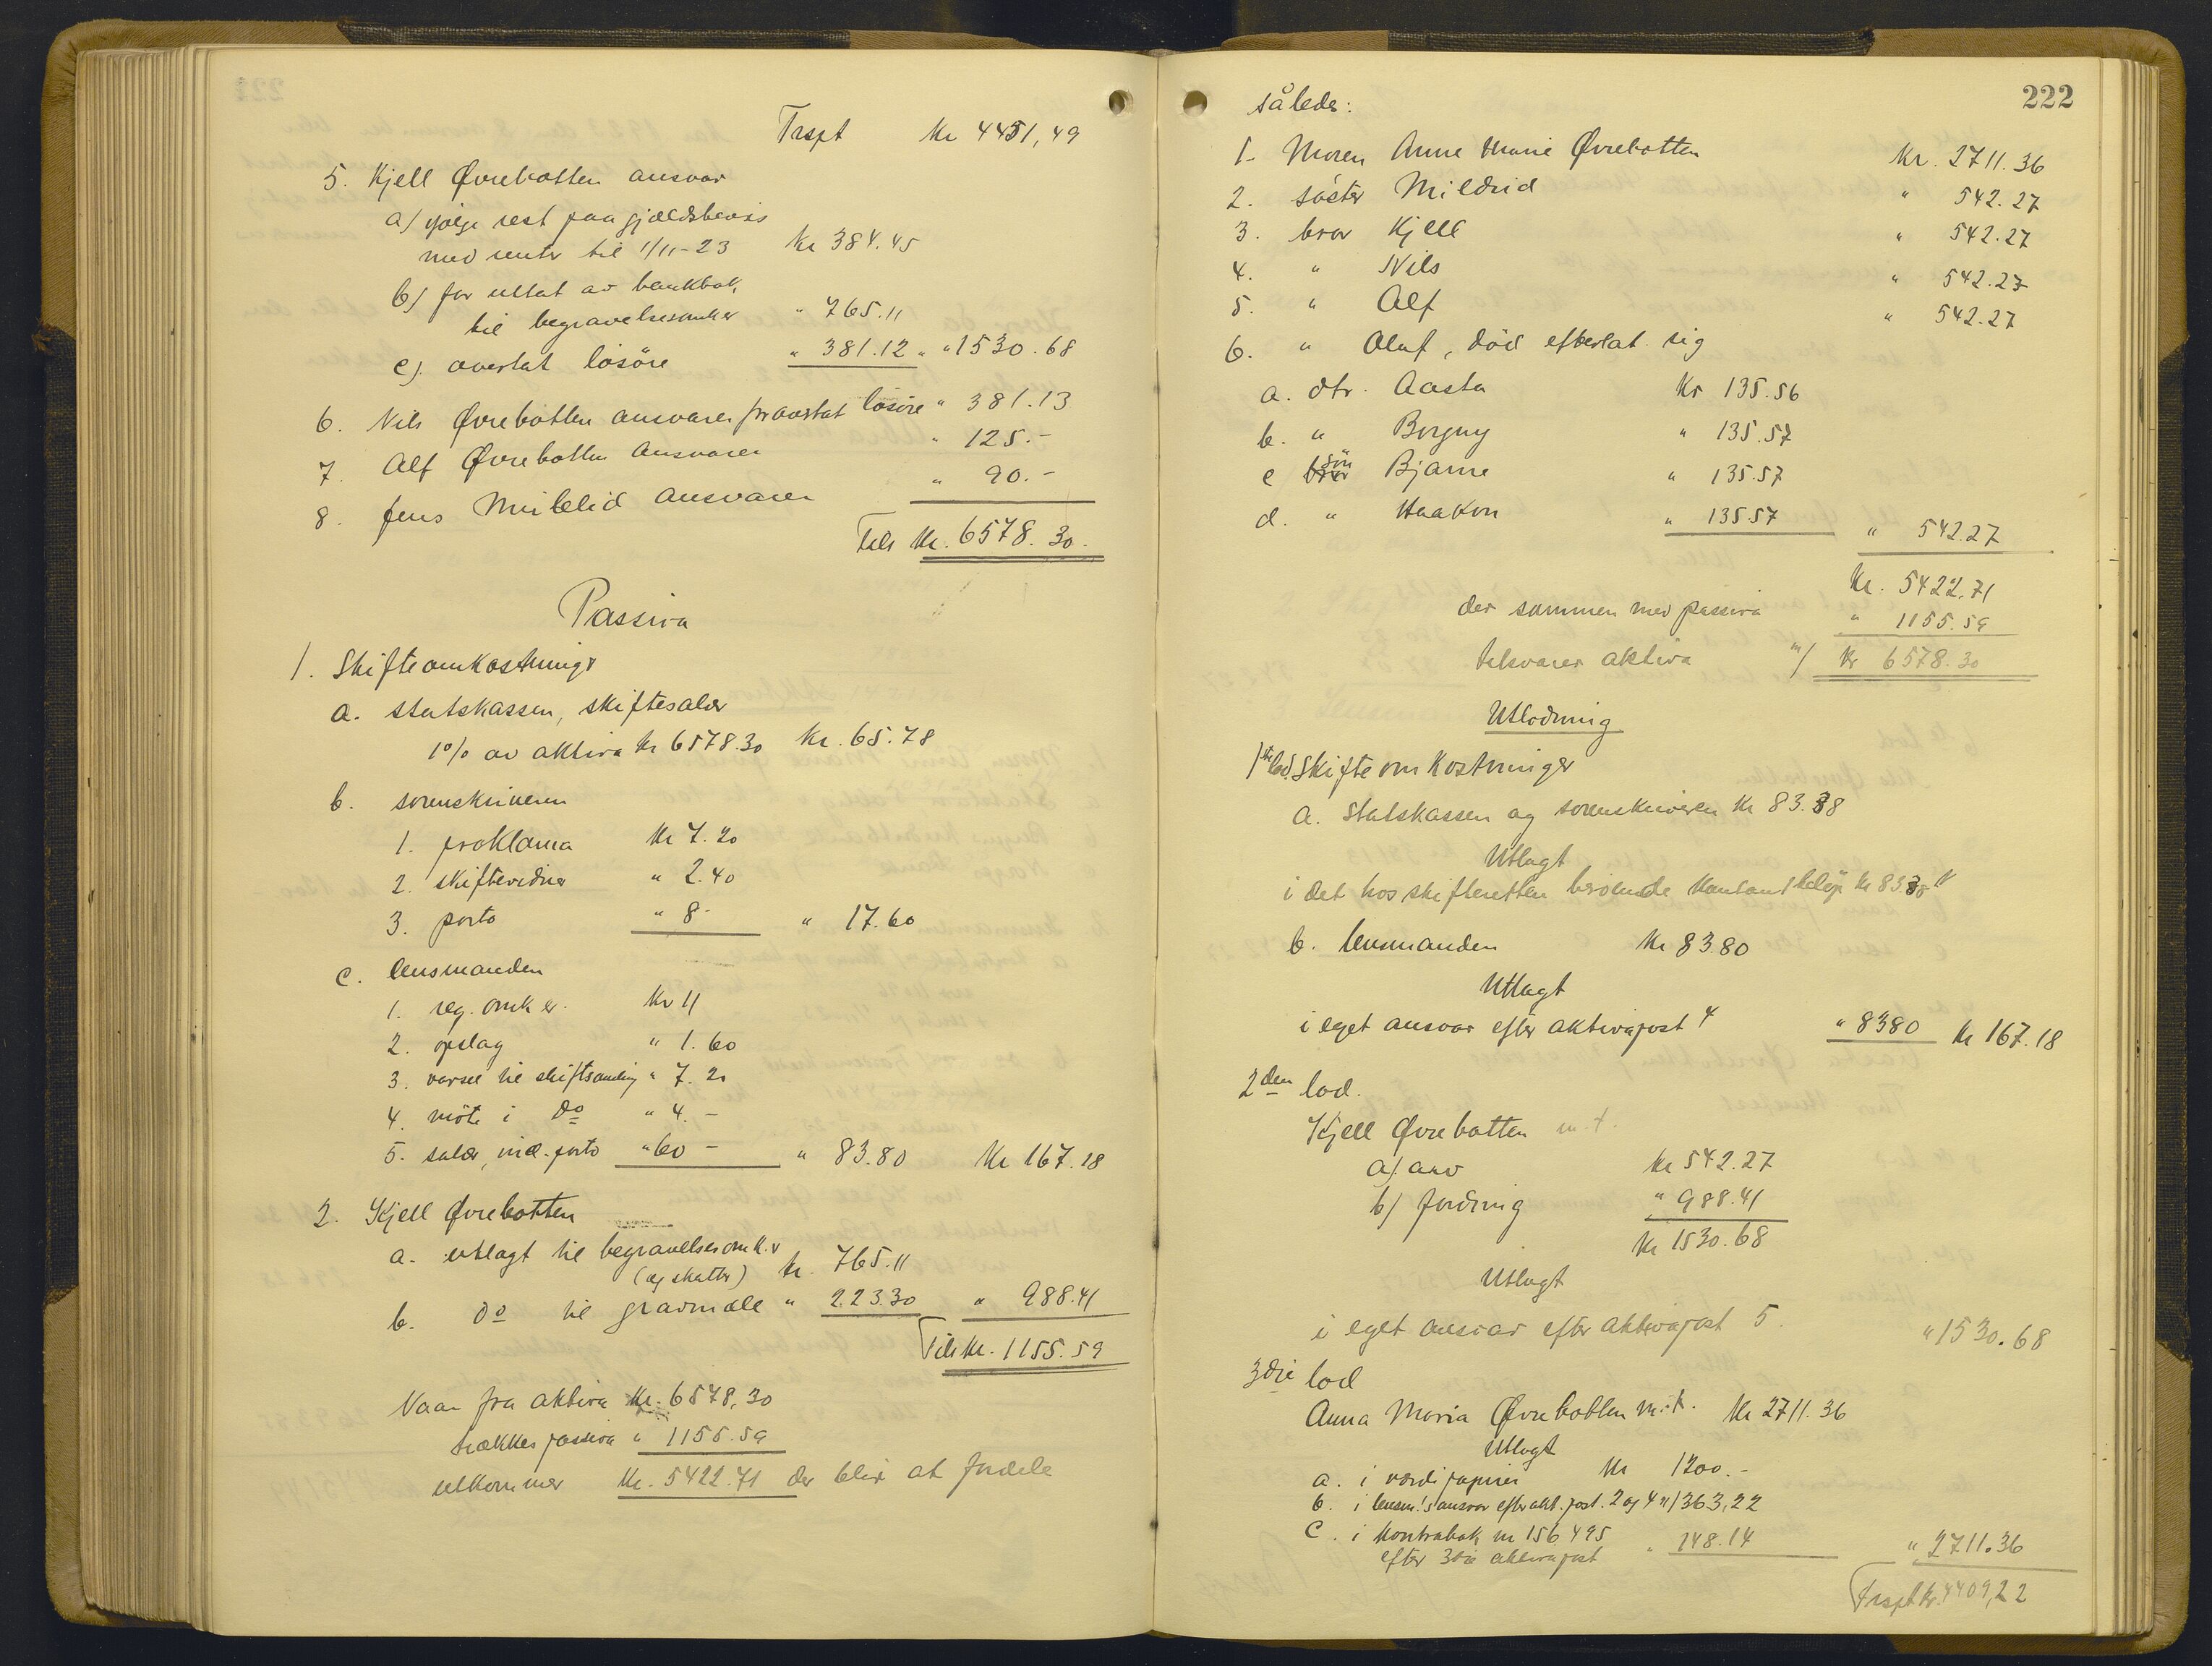 Trspt Kr 4451,49
5. Kjell Øvrebotten ansvar
a) ifølge rest paa gjældsbevis
med renter til 1/11-23 Kr 384.45
b) for uttat av bankbok
til begravelsesomk.er " 765.11
c). overtat løsøre " 381.12 " "1530.68
6. Nils Øvrebotten ansvarer for overtat løsøre " 381.13
7. Alf Øvrebotten ansvarer " 125.-
8. Jens Myklelid ansvarer " 90.-
Tils Kr. 6578.30.
Passiva
1. Skifteomkostninger
a. statskassen, skiftesalær
1% av aktiva kr 6578.30 Kr. 65.78
b. sorenskriveren
1. proklama Kr 7.20
2. skiftevidner " 2.40
3. porto " 8- " 17.60
c. lensmanden
1. reg. omk.er. Kr 11
2. opslag " 1.60
3. varsel til skiftsamling " 7.20
4. møte i do " 4.-
5. salær, incl. porto "60- " 83.80 Kr 167.18
2. Kjell Øvrebotten
a. utlagt til begravelsesomk.r
(og skatter) kr. 765.11
b. do til gravmæle " 223.30 " 988.41
Tils Kr. 1155.59
Naar fra aktiva Kr. 6578,30
trækkes passiva " 1155.59
utkommer Kr. 5422.71 der blir at fordele
222
således:
1. Moren Anne Marie Øvrebotten Kr. 2711.36
2. søster Mildrid " 542.27
3. bror Kjell " 542.27
4. " Nils " 542.27
5. " Alf " 542.27
6. " Oluf, død efterlat sig
a. dtr. Aasta Kr 135.56
b. " Borgny " 135.57
c bror søn Bjarne " 135.57
d. " Haakon " 135.57 " 542.27
Kr. 5422.71
der sammen med passiva " 1155.59
tilsvarer aktiva Kr 6578.30
Utlodning
1ste lod. Skifteomkostninger
a. Statskassen og sorenskriveren Kr 83.38
Utlagt
i det hos skifteretten beroende kontantbeløp kr 83.38
b. lensmanden Kr 83.80
Utlagt
i eget ansvar efter aktivapost 4 " 83 80 Kr 167.18
2den lod.
Kjell Øvrebotten m.t.
a). arv Kr 542.27
b) fordring " 988.41
Kr 1530.68
Utlagt
i eget ansvar efter aktivapost 5. "1530.68
3die lod
Anna Maria Øvrebotten m.t. Kr 2711.36
Utlagt
a. i værdipapirer Kr 1200.-
b. i lensm.'s ansvar efter akt. post. 2 og 4 "1363,22
c. i kontrabok nr 156495
efter 3die aktivapost " 148.14 " 2711.36
Trspt kr. 4409,22